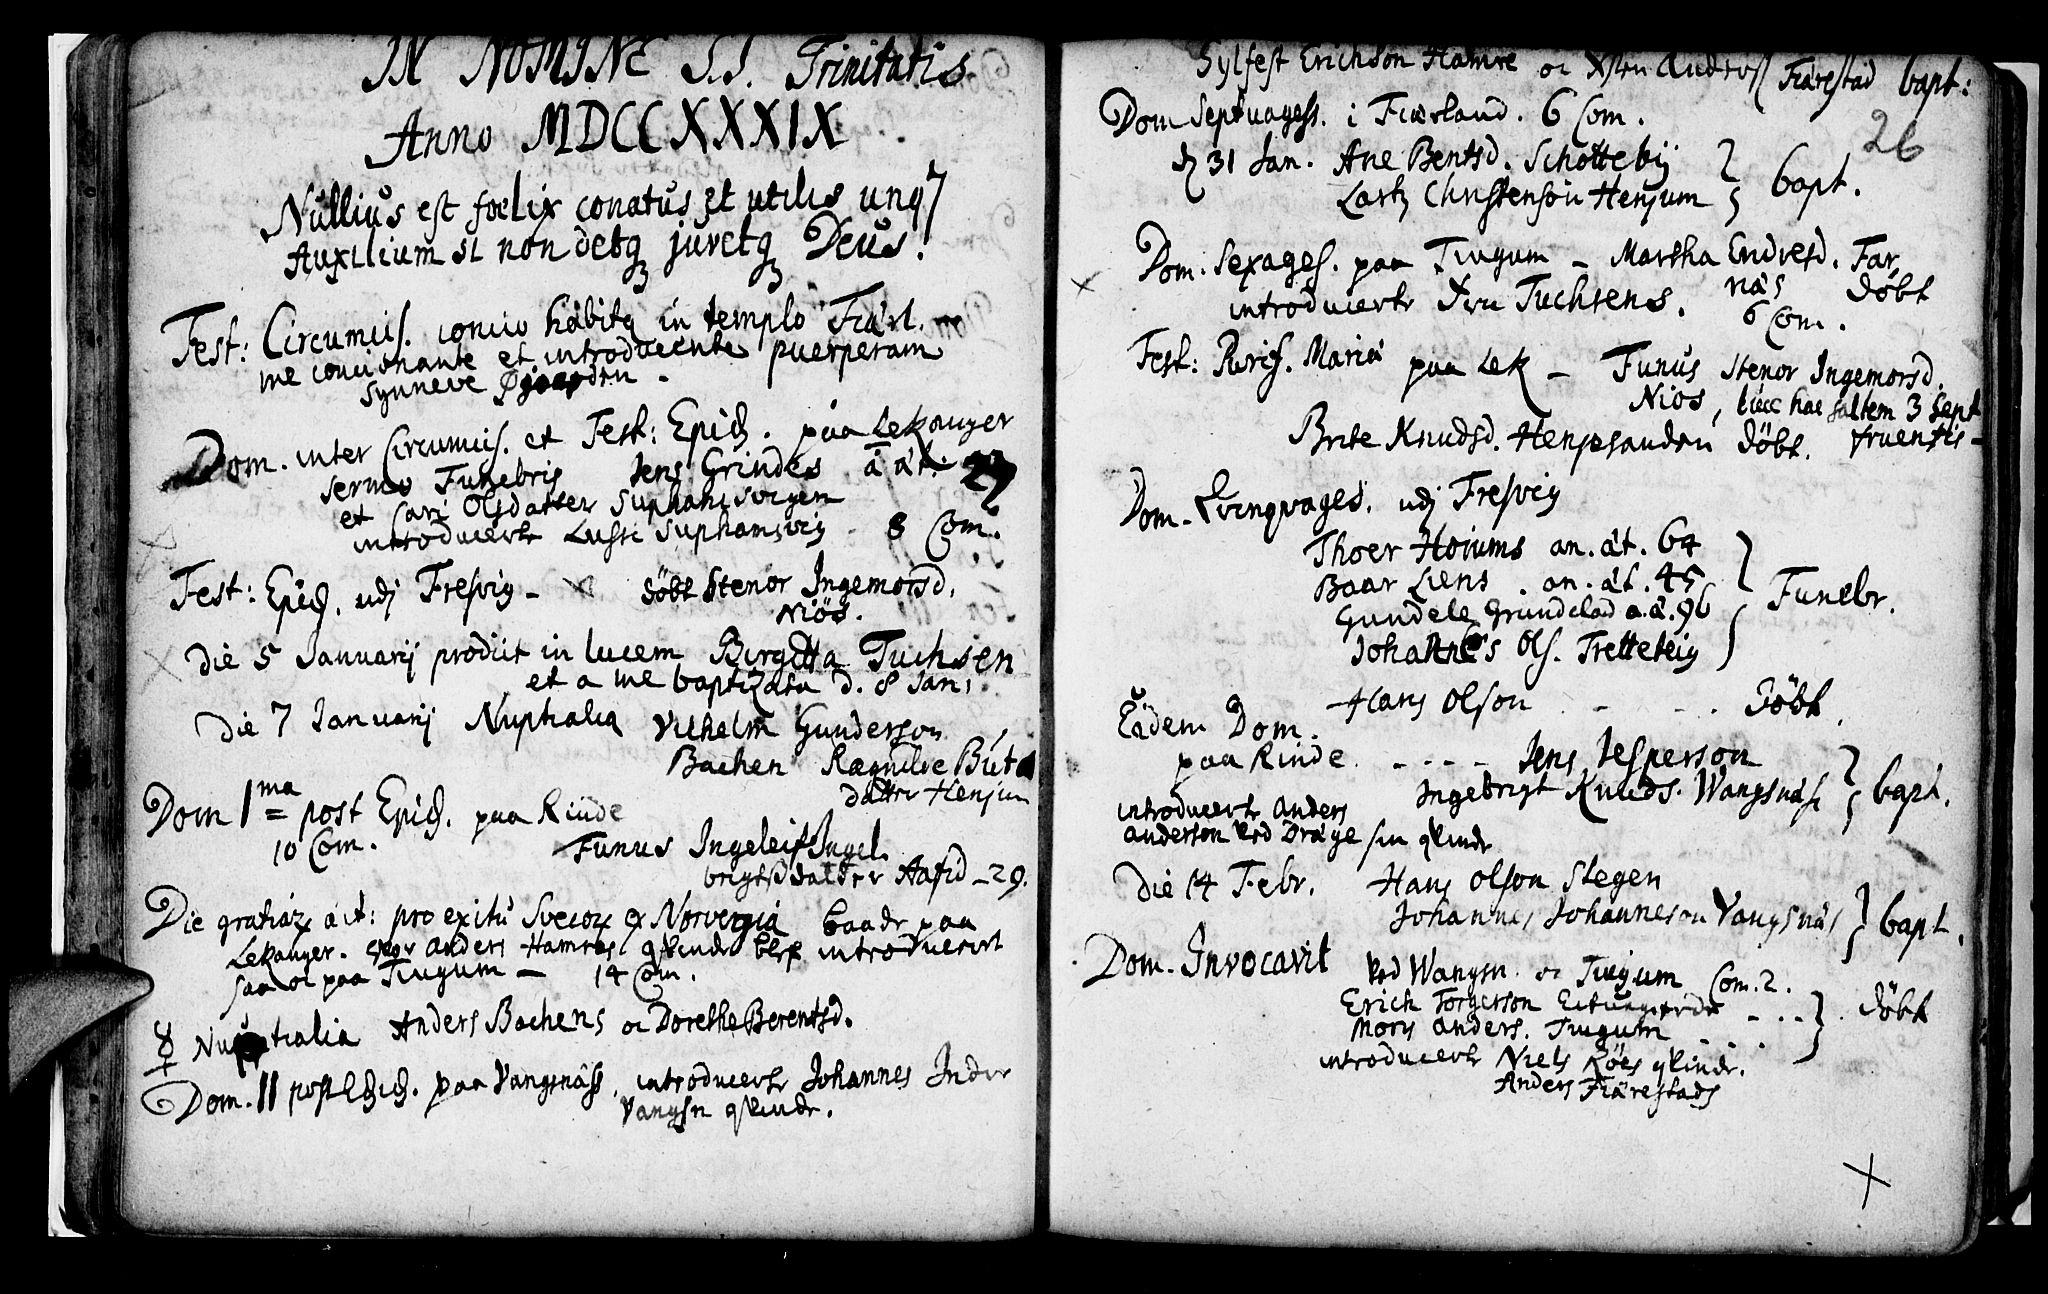 IN NOMINE S.S. Trinitatis
Anno MDCCXXXIX
Nullius est foelix conatus et utilis unq
Auxilium si non detq juvetq Deus.
Fest: Circumcis. concio habita in templo Fiærl.
me concionante et introducente puerperam
Synneve
Dom. inter Circumcis. et Fest: Epiph. paa Lekanger
sermo Funebris Jens Grindes á æt. 27
et Cari Olsdatter Suphamsvigen
introducerte Lussi Suphamsvig 8 Com.
Fest: Epiph. udj Fresvig – döbt Stenor Ingemorsd.
Niös.
die 5 Januarij prodiit in lucem Birgitta Tuchsen
et a me baptizata d. 8 Jan.
die 7 Januarij Nuptialia Vilhelm Gunderson
Bachen Ragnilde
datter Henjum
Dom 1ma post Epiph. paa Rinde
10 Com. Funus Ingeleif Ingel
brigtsdatter Aafid – 29.
Die gratiar act: pro exitu Svecor ex Norvergia baade paa
Lekanger. Anders Hamres qvinde blef introducerit
saa oc paa Tiugum – 14 Com.
♀ Nuptialia Anders Bachens oc Dorethe Berentsd.
Dom. II post Epiph. paa Vangsnäss, introducerte Johannes Inder
Vangsn qvinde.
Sylfest Erichson Hamre oc Anders Fiærestad bapt:
26
Dom Septuagess. i Fiærland. 6 Com.
d 31 Jan. Ane Bentsd. Schottebÿ
Lars Christensön Henjum } bapt.
Dom. Sexages. paa Tiugum – Martha Endresd. Far
näs döbt
introducerte Fru Tuchsens. 6 Com.
Fest: Purif. Mariæ paa Lek – Funus Stenor Ingemorsd.
Niös, luce hac saltem 3 Sept
Brite Knudsd. Henjesanden döbt. fruentis –
Dom. Qvinqvages. udj Fresvig
Thoer Hoiums an. æt. 64
Baar Liens an. æt. 45
Gundele Grundelad a. æ. 96
Johannes Ols. Tretteteig } Funebr.
Hans Olson – – . döbt.
Eâdem Dom.
paa Rinde. – – – – Jens Jesperson
Ingebrigt Knuds. Wangsnæs } bapt.
introducerte Anders
Anderson ved Dräge sin qvinde
Die 14 Febr. Hans Olson Stegen
Johannes Johanneson Vangsnäs } bapt.
Dom. Invocavit ved Wangsn. oc Tiugum Com. 2.
Erich Torgerson
Anders. Tiugum . . . } döbt
introducerte Niels Röes qvinde.
Anders Fiærestads